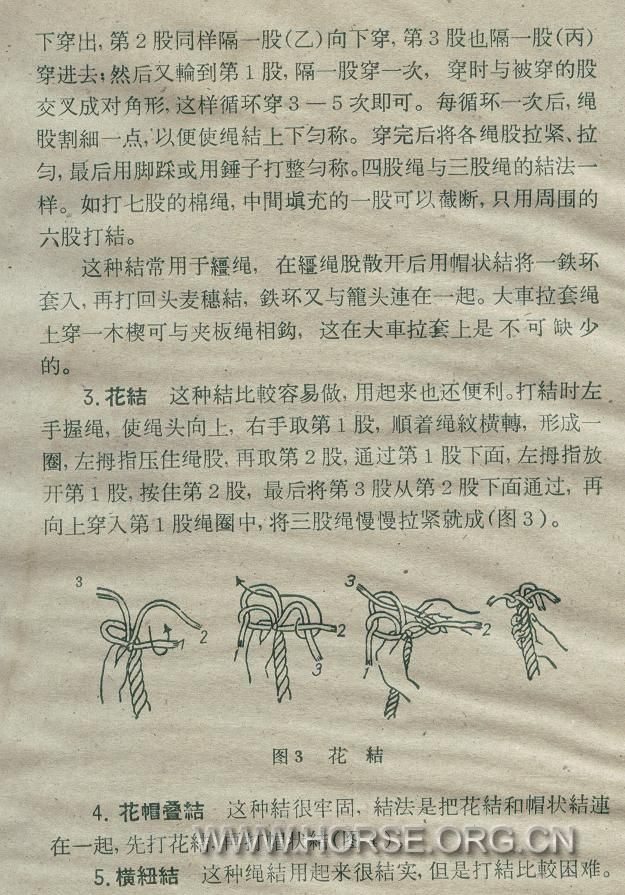 下穿出,第2股同样隔一股(乙)向下穿,第3股也隔一股(丙)
穿进去;然后又輪到第1股,隔一股穿一次, 穿时与被穿的股
交叉成对角形,这样循环穿3—5次即可。每循环一次后,绳
股割細一点,以便使绳結上下匀称。穿完后将各绳股拉紧、拉
匀,最后用脚踩或用錘子打整匀称。四股绳与三股绳的結法一
样。如打七股的棉绳,中間填充的一股可以截断,只用周围的
六股打結。
这种結常用于繮绳, 在繮绳脫散开后用帽状結将一鉄环
套入,再打回头麦穗結,鉄环又与籠头連在一起。大車拉套绳
上穿一木楔可与夹板绳相鈎, 这在大車拉套上是不可缺少
的。
3.花結 这种結比較容易做,用起来也还便利。打結时左
手握绳, 使绳头向上, 右手取第1股, 順着绳紋横轉, 形成一
圈,左拇指压住绳股,再取第2股,通过第1股下面,左拇指放
开第1股,按住第2股, 最后将第3股从第2股下面通过, 再
向上穿入第1股绳圈中,将三股绳慢慢拉紧就成(图3)。
3
1
2
1
2
3
3
1
2
图3 花 結
4.花帽叠結 这种結很牢固, 結法是把花結和帽状結連
在一起,先打花結
WWW.HORSE.ORG.CN
5.横紐結 这种绳結用起来很結实,但是打結比較困难。